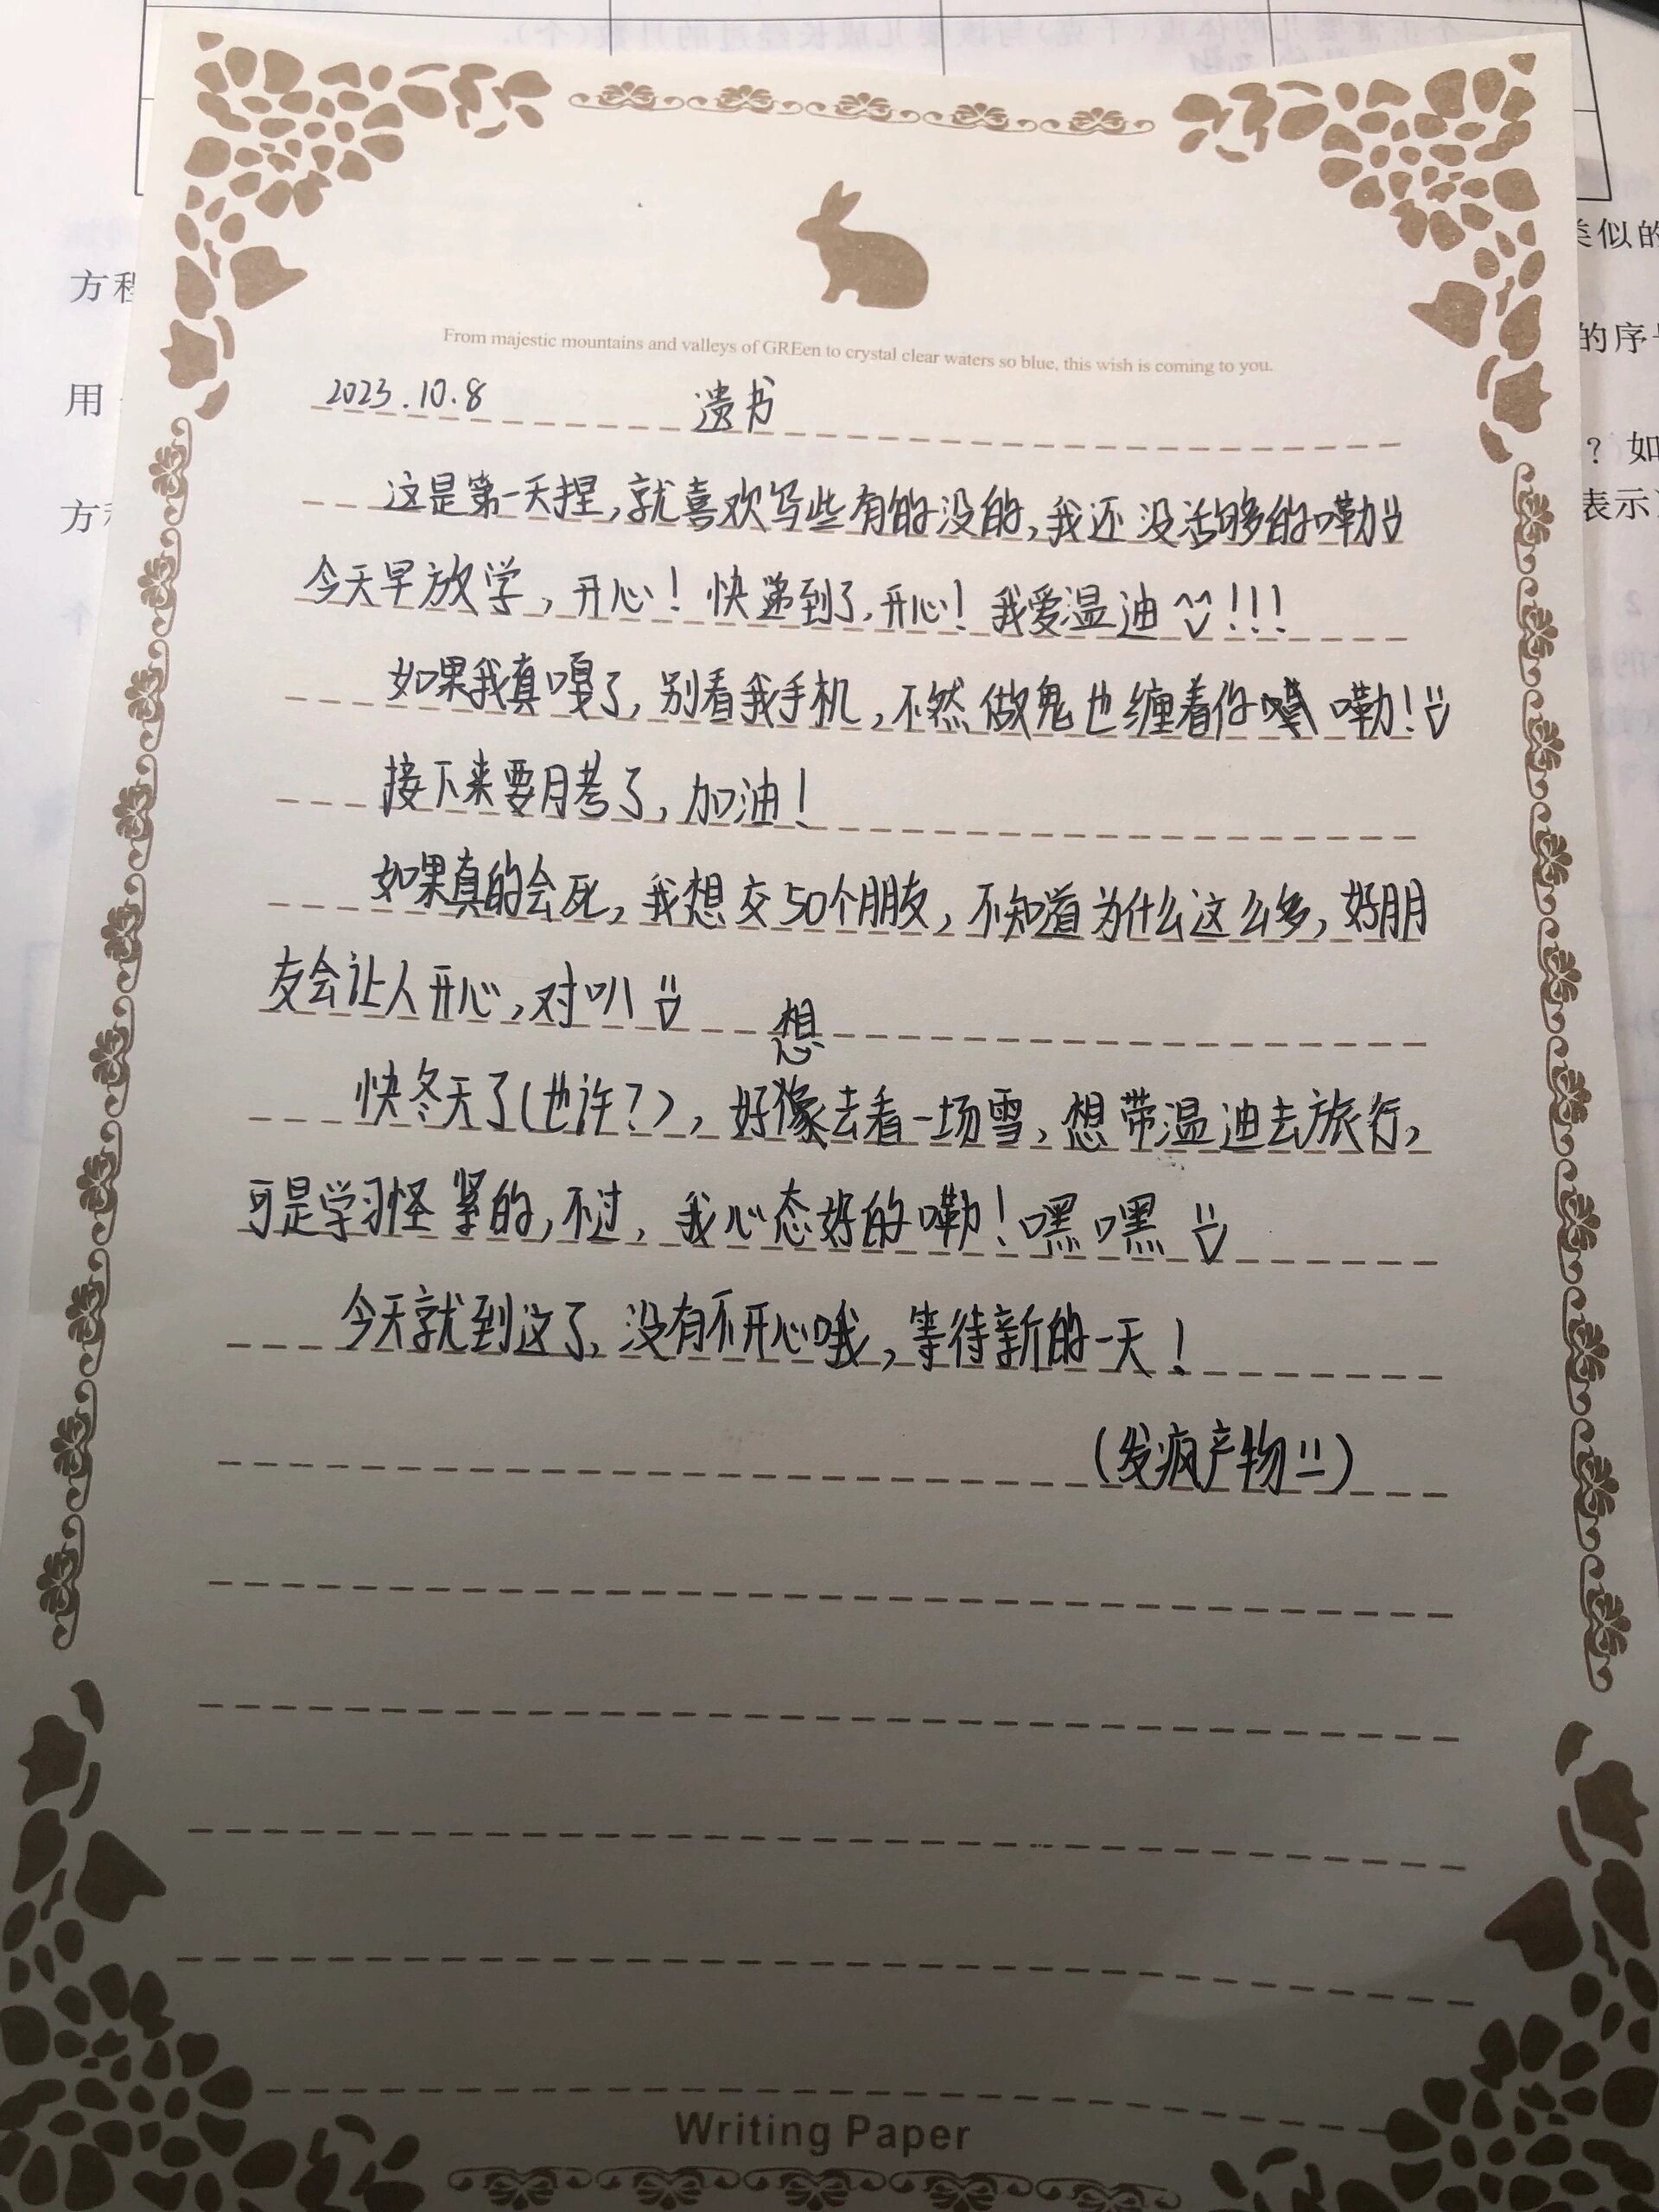 From majestic mountains and valleys of GREen to crystal clear waters so blue, this wish is coming to you.
2023.10.8 遗书
这是第一天捏,就喜欢写些有的没的,我还没活够的嘞
今天早放学,开心!快递到了,开心!我爱温迪^^!!!
如果我真嘎了,别看我手机,不然做鬼也缠着你 嘞!
接下来要月考了,加油!
如果真的会死,我想交50个朋友,不知道为什么这么多,好朋
友会让人开心,对叭
想
快冬天了(也许?),好像去看一场雪,想带温迪去旅行,
可是学习怪紧的,不过,我心态好的嘞!嘿嘿
今天就到这了,没有不开心哦,等待新的一天!
(发疯产物!!)
Writing Paper
方程
用
类似的
的序号
? 如
表示